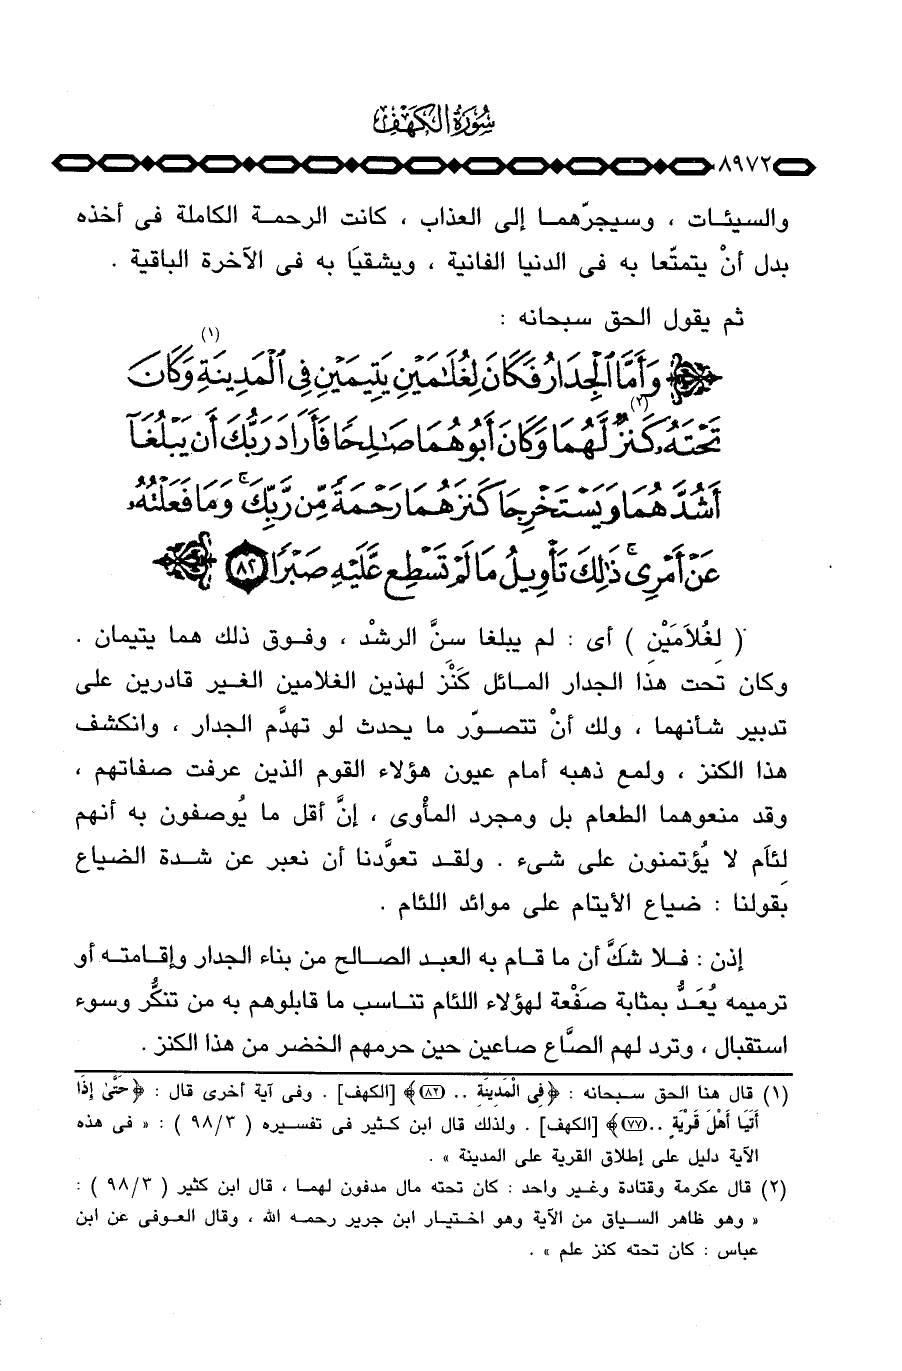 سُورَةُ الكَهْفِ
٨٩٧٢
والسيئـات ، وسيجرّهمـا إلى العذاب ، كانت الرحمـة الكاملة فى أخذه
بدل أنْ يتمتّعا به فى الدنيا الفانية ، ويشقيَا به فى الآخرة الباقية .
ثم يقول الحق سبحانه :
وَأَمَّا ٱلْجِدَارُ فَكَانَ لِغُلَٰمَيْنِ يَتِيمَيْنِ فِى ٱلْمَدِينَةِ (١) وَكَانَ
تَحْتَهُۥ كَنزٌ (٢) لَّهُمَا وَكَانَ أَبُوهُمَا صَٰلِحًا فَأَرَادَ رَبُّكَ أَن يَبْلُغَآ
أَشُدَّهُمَا وَيَسْتَخْرِجَا كَنزَهُمَا رَحْمَةً مِّن رَّبِّكَ ۚ وَمَا فَعَلْتُهُۥ
عَنْ أَمْرِى ۚ ذَٰلِكَ تَأْوِيلُ مَا لَمْ تَسْطِع عَّلَيْهِ صَبْرًا ٨٢
( لِغُلَامَيْنِ ) أى : لم يبلغا سنَّ الرشدْ ، وفـوق ذلك هما يتيمان .
وكان تحت هذا الجدار المـائل كَنْز لهذين الغلامين الغـير قادرين على
تدبير شأنهما ، ولك أنْ تتصـوّر ما يحدث لو تهدَّم الجدار ، وانكشف
هذا الكنز ، ولمع ذهبه أمام عيون هؤلاء القوم الذين عرفت صفاتهم ،
وقد منعوهما الطعام بل ومجرد المأْوى ، إنَّ أقل ما يُوصفون به أنهم
لئام لا يُؤتمنون على شىء . ولقـد تعوَّدنا أن نعبر عن شدة الضياع
بقولنا : ضياع الأيتام على موائد اللئام .
إذن : فـلا شكَّ أن ما قـام به العبد الصـالح من بناء الجدار وإقـامتـه أو
ترميمه يُعَدُّ بمثابة صَفْعة لهؤلاء اللئام تنـاسب ما قابلوهم به من تنكُّر وسوء
استقبال ، وترد لهم الصَّاع صاعين حين حرمهم الخضر من هذا الكنز .
(١) قال هنا الحق سـبحانه : ﴿فِى الْمَدِينَةِ .. (٨٢)﴾ [الكهف] . وفى آية أخرى قال : ﴿حَتَّىٰ إِذَا
أَتَيَا أَهْلَ قَرْيَةٍ ..(٧٧)﴾ [الكهف] . ولذلك قال ابن كـثير فى تفسيره ( ٩٨/٣ ) : « فى هذه
الآية دليل على إطلاق القرية على المدينة » .
(٢) قال عكرمة وقتادة وغـير واحد : كان تحته مال مدفون لهمـا ، قال ابن كثير ( ٩٨/٣ ) :
« وهو ظاهر السـياق من الآية وهو اخـتيار ابن جرير رحمـه الله ، وقال العـوفى عن ابن
عباس : كان تحته كنز علم » .